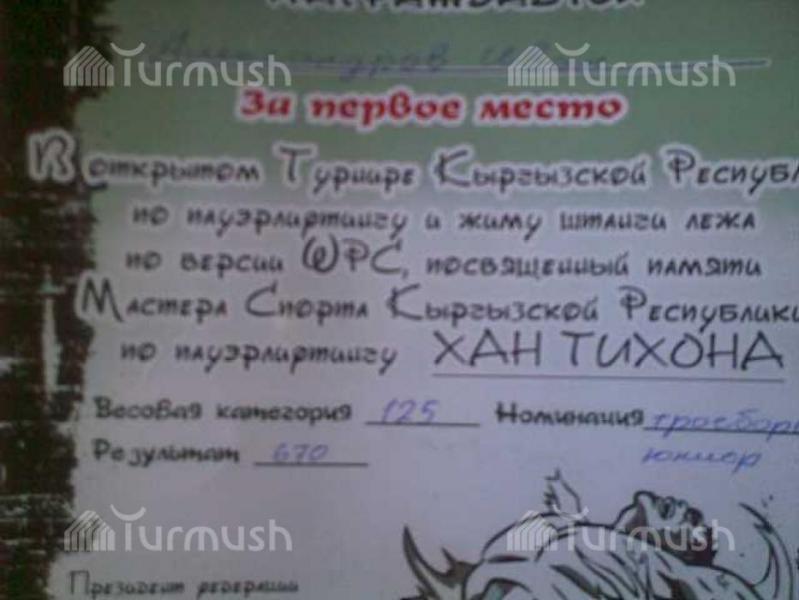 НАГРАЖДАЕТСЯ
Turmush Turmush
За первое место
В открытом Турнире Кыргызской Республ
по пауэрлифтингу и жиму штанги лежа
по версии WPC, посвященный памяти
Мастера Спорта Кыргызской Республики
по пауэрлифтингу ХАН ТИХОНА
Весовая категория 125 Номинация троебор
Результат 670 юниор
Turmush Turmush
Президент федерации